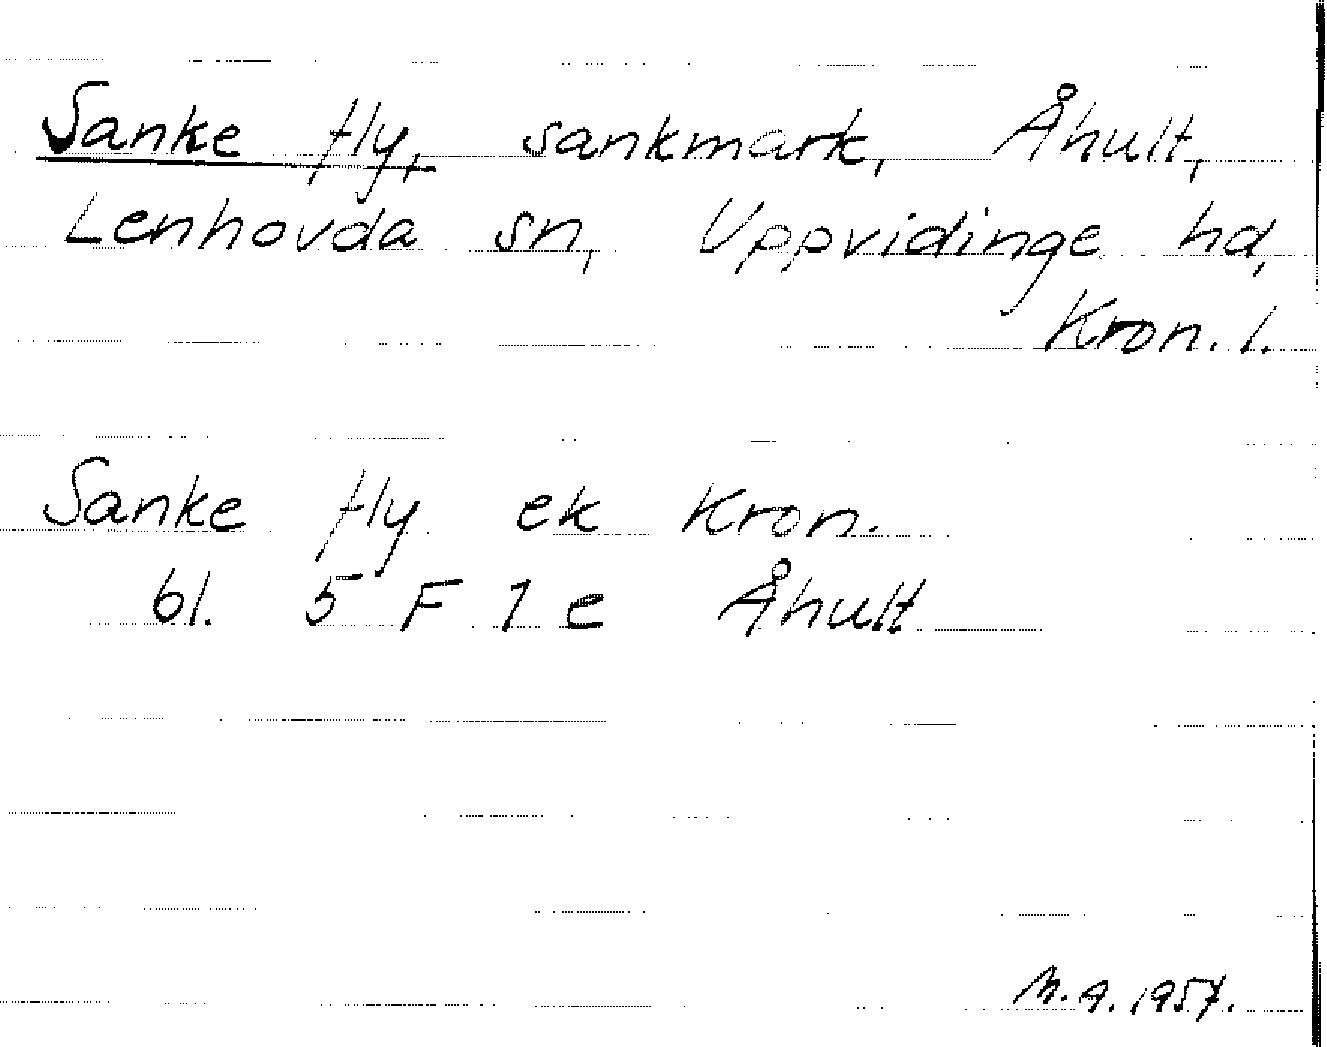 Sanke fly, sankmark, Åhult,
Lenhovda sn, Uppvidinge hd,
Kron. l.
Sanke fly ek Kron.
bl. 5 F 1 e Åhult
M.A. 1957.